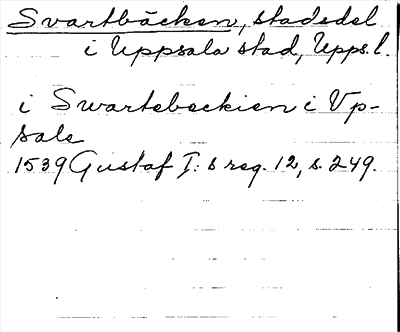 Svartbäcken, stadsdel
i Uppsala stad, Upps.l.
i Swartebeckien i Vp-
sale
1539 Gustaf I:s reg. 12, s. 249.